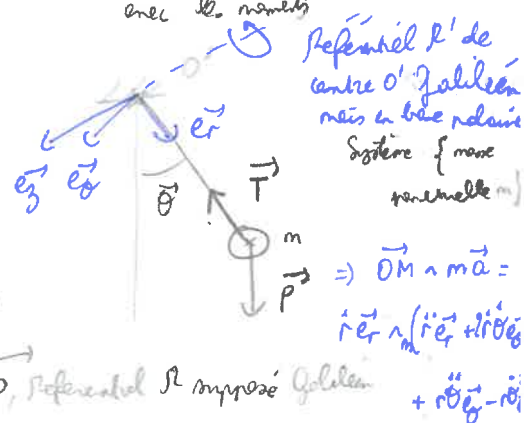 avec les moments
Référentiel R' de
centre O' Galiléen
mais en base polaire
Système { masse
ponctuelle m }
O'
er
ez eθ
θ
T
m
P
=> OM ∧ ma =
r er ∧ m( r̈ er + 2ṙθ̇ eθ
+ rθ̈ eθ - rθ̇
Référentiel R supposé Galiléen